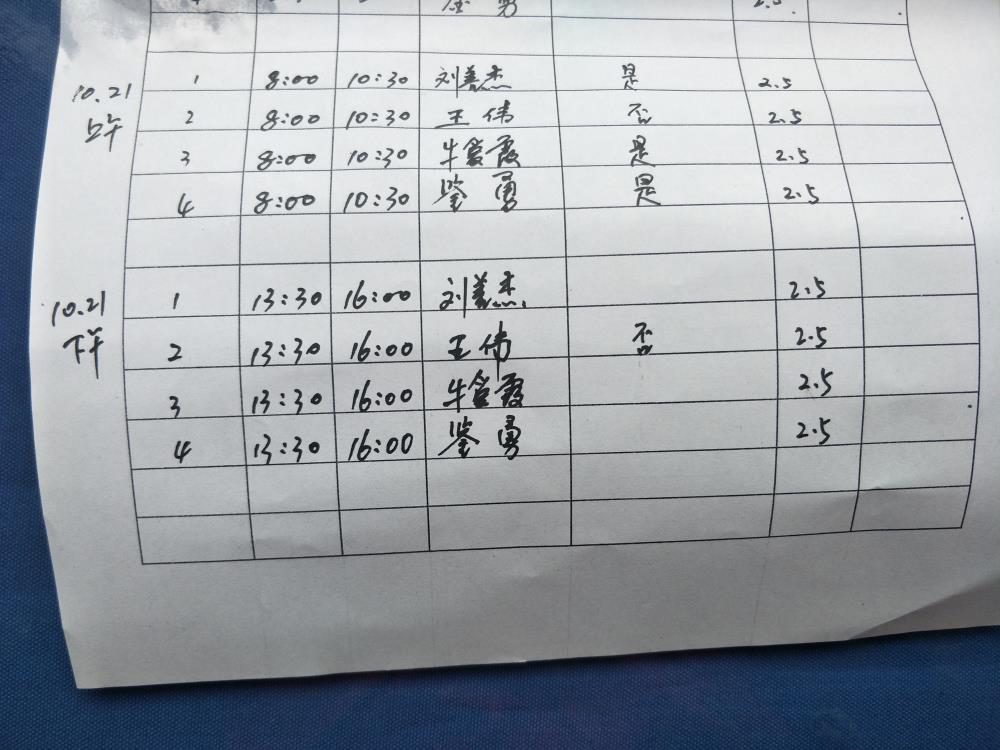 2.5
10.21
上午
1 8:00 10:30 刘善杰 是 2.5
2 8:00 10:30 王伟 否 2.5
3 8:00 10:30 牛爱霞 是 2.5
4 8:00 10:30 鉴勇 是 2.5
10.21
下午
1 13:30 16:00 刘善杰 2.5
2 13:30 16:00 王伟 否 2.5
3 13:30 16:00 牛爱霞 2.5
4 13:30 16:00 鉴勇 2.5